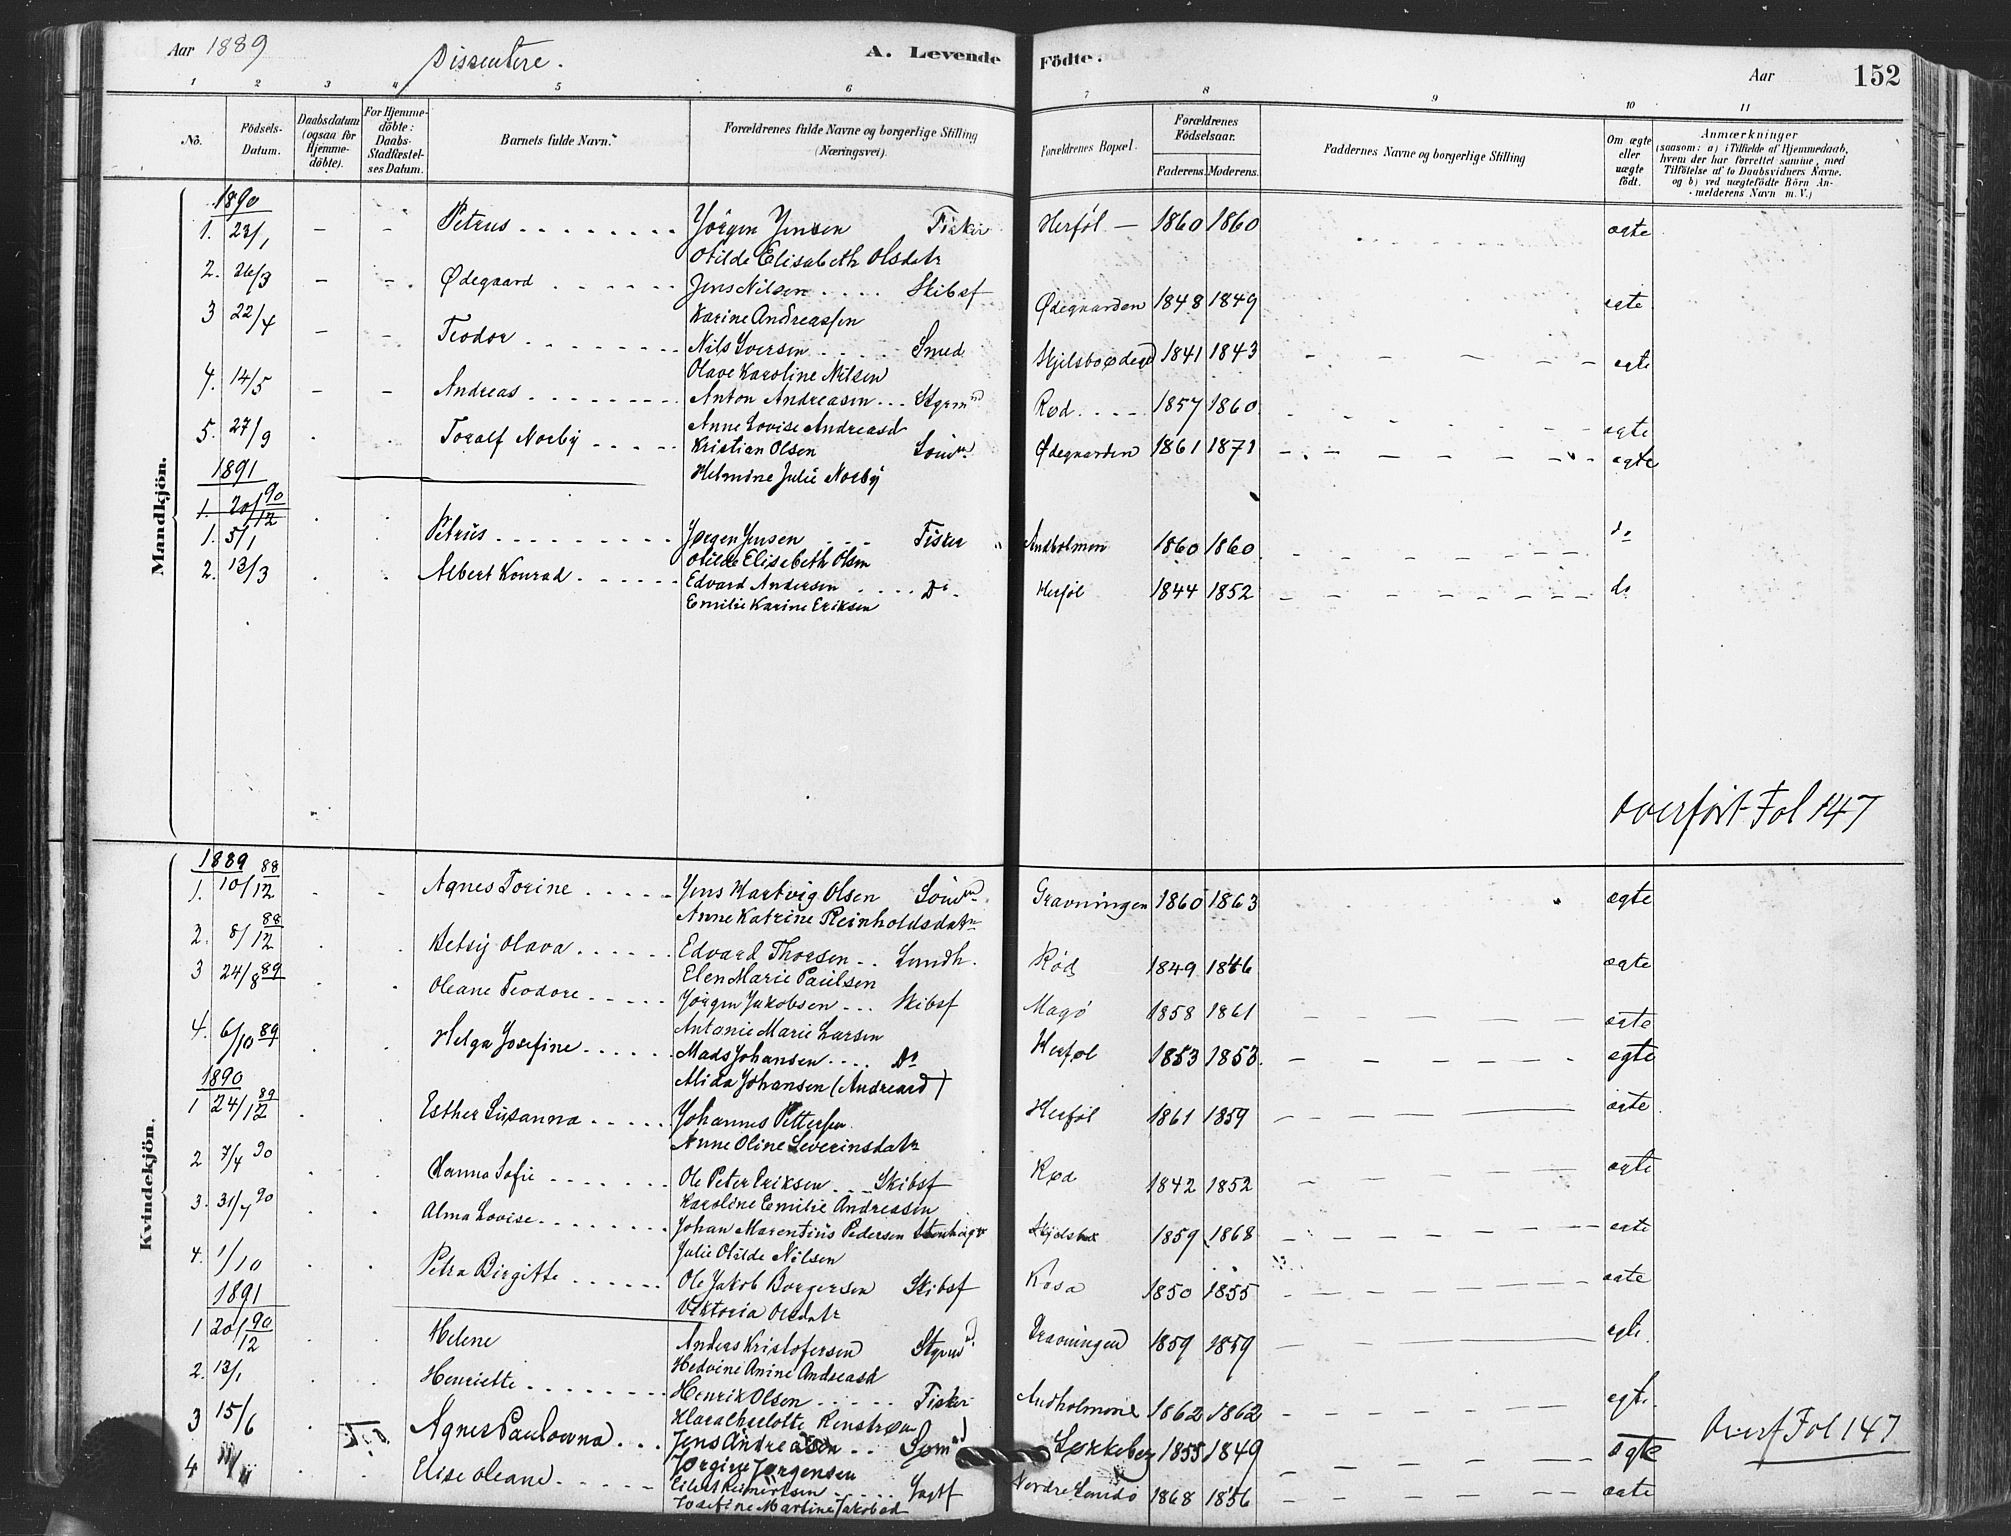 Aar 1889 Dissentere. A. Levende Födte. Aar 152
1 2 3 4 5 6 7 8 9 10 11
No. Födsels-Datum. Daabsdatum (ogsaa for Hjemme-döbte). For Hjemme-döbte: Daabs-Stadfæstel-ses Datum. Barnets fulde Navn. Forældrenes fulde Navne og borgerlige Stilling (Næringsvei). Forældrenes Bopæl. Forældrenes Födselsaar. Faderens. Moderens. Faddernes Navne og borgerlige Stilling Om ægte eller uægte födt. Anmærkninger (saasom: a) i Tilfælde af Hjemmedaab, hvem der har forrettet samme, med Tilföielse af to Daabsvidners Navne. og b) ved uægtefödte Börn An-melderens Navn m. V.)
Mandkjön.
1890
1. 23/1 - - Petrus Jörgen Jensen Fisker Herføl - 1860 1860 ægte
Otilde Elisabeth Olsdatr
2. 26/3 - - Ødegaard Jens Nilsen Skibsf Ødegaarden 1848 1849 ægte
Karine Andreassen
3 22/4 - - Teodor Nils Iversen Smed 1841 1843 ægte
Olave Karoline Nilsen
4. 14/5 - - Andreas Anton Andreasen Styrmd Rød 1857 1860 ægte
Anne Lovise Andreasd
5. 27/9 Toralf Norby Kristian Olsen Ødegaarden 1861 1871 ægte
Helmine Julie Norby
1891
1. 20/12 90
1. 5/1 Petrus Jørgen Jensen Fisker Andholmen 1860 1860 do
Otilde Elisebeth Olsen
2. 13/3 Albert Konrad Edvard Andersen Do Herføl 1844 1852 do
Emilie Karine Eriksen
overført Fol 147
Kvindekjön.
1889
1. 10/12 88 Agnes Torine Jens Hartvig Olsen Gravningen 1860 1863 ægte
Anne Katrine Reinholdsdatr
2. 8/12 88 Betsy Olava Edvard Thorsen Lundh. Rød 1849 1846 ægte
Elen Marie Paulsen
3 24/8 89 Oleane Teodore Jörgen Jakobsen Skibsf Magø 1858 1861 ægte
Antonie Marie Larsen
4. 6/10 89 Helga Josefine Mads Johansen Do Herføl 1853 1853 ægte
Alida Johansen (Andreasd)
1890
1 24/12 89 Esther Susanna Johannes Pettersen Herføl 1861 1859 ægte
Anne Oline Severinsdatr
2 7/4 90 Hanna Sofie Ole Peter Eriksen Skibsf Rød 1842 1852 ægte
Karoline Emilie Andreasen
3. 31/7 90 Alma Lovise Johan Marentius Pedersen Stenhugr 1859 1868 ægte
Julie Otilde Nilsen
4. 1/10 Petra Birgitte Ole Jakob Borgersen Skibsf Kasa 1850 1855 ægte
Viktoria Olsdatr
1891
1 20/12 90 Helene Anders Kristofersen Styrmd Gravningen 1859 1859 ægte
Hedvine Anine Andreasd
2. 13/1 Henriette Henrik Olsen Fisker Andholmene 1862 1862 ægte
Klara Charlotte Renstrøm
3 15/6 Agnes Paulowna Jens Andreasen Sømd Løkkeberg 1855 1849 ægte Overf Fol 147
Jørgine Jørgensen
4 Elise Oleane Eilert Reinertsen Jagtf Nordre 1868 1856 ægte
Josefine Martine Jakobsd